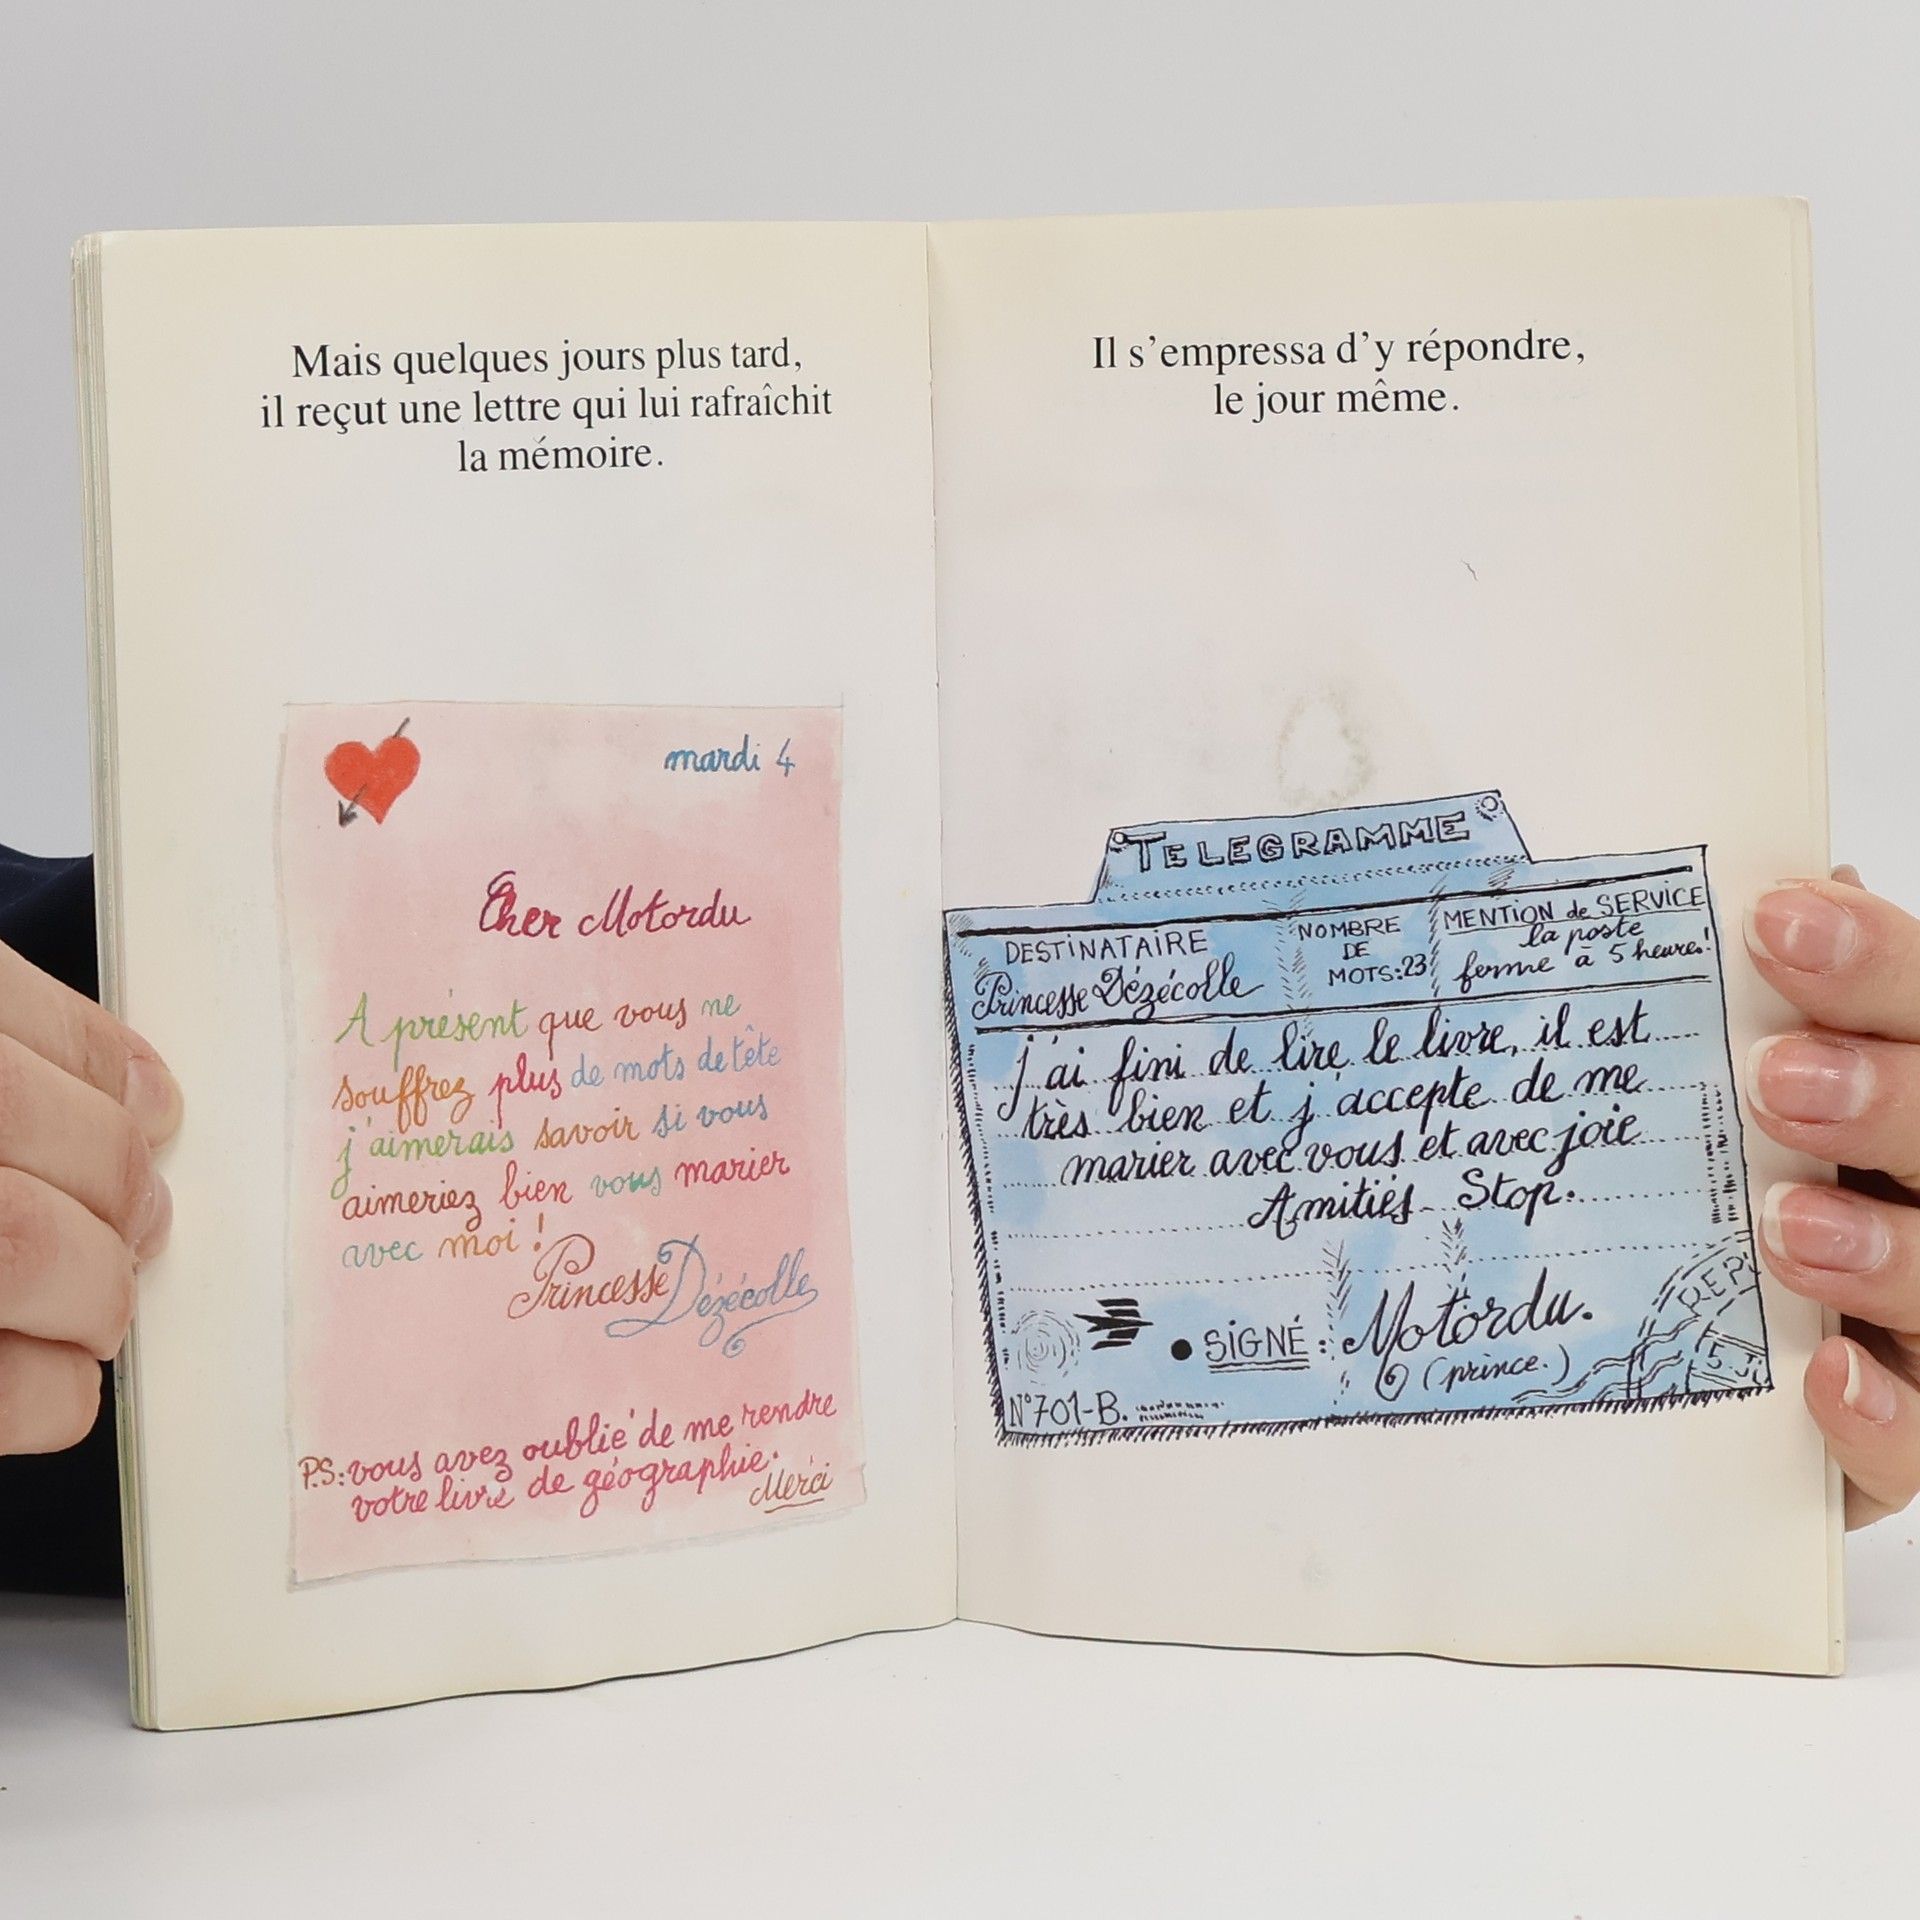 Mais quelques jours plus tard,
il reçut une lettre qui lui rafraîchit
la mémoire.
mardi 4
Cher Motordu
A présent que vous ne
souffrez plus de mots de tête
j'aimerais savoir si vous
aimeriez bien vous marier
avec moi !
Princesse Dézécolle
P.S: vous avez oublié de me rendre
votre livre de géographie.
Merci
Il s'empressa d'y répondre,
le jour même.
TELEGRAMME
DESTINATAIRE
Princesse Dézécolle
NOMBRE
DE
MOTS:23
MENTION de SERVICE
la poste
ferme à 5 heures!
j'ai fini de lire le livre, il est
très bien et j'accepte de me
marier avec vous et avec joie
Amitiés Stop.
SIGNÉ : Motordu.
(prince.)
N°701-B.